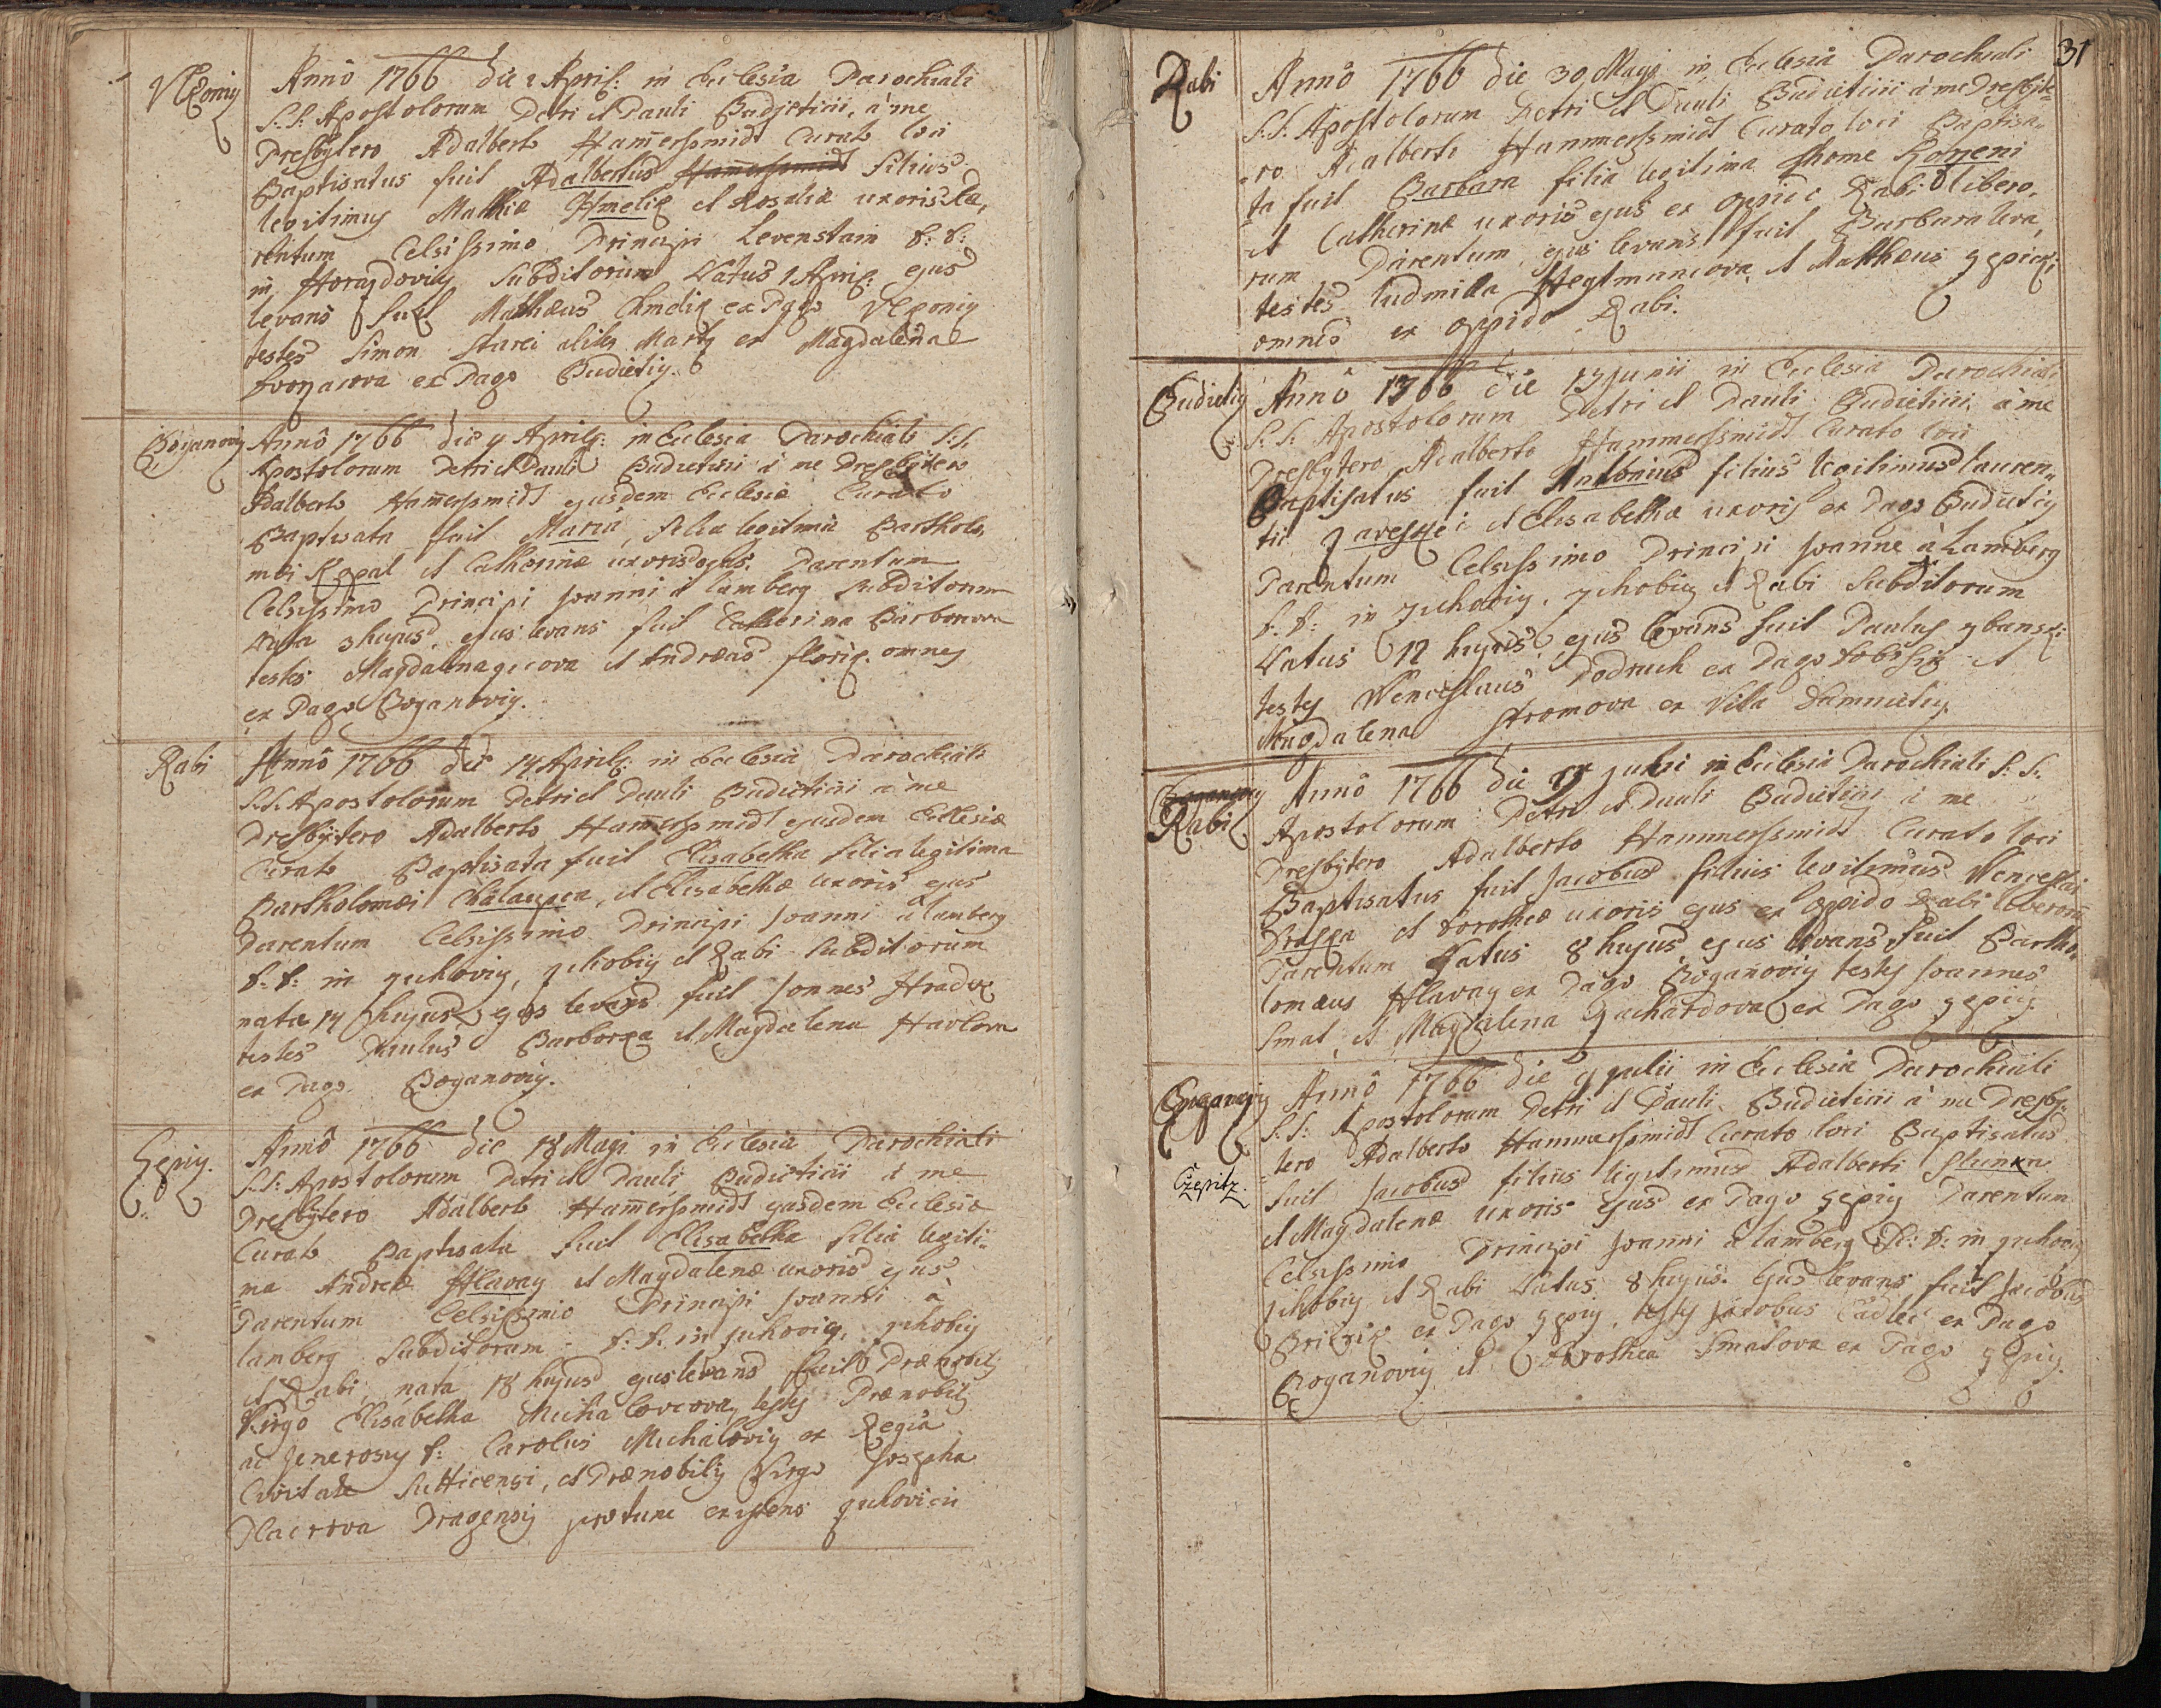 Vlkoniy
Anno 1766 die 2 April: in Ecclesia Parochiali
S.S. Apostolorum Petri et Pauli Budietinii, à me
Presbytero Adalberto Ham̄erssmidt Curato loci
Baptisatus fuit Adalbertus Ham̄erssmidt filius
legitimus Mathiæ Hmeliz et Rosaliæ uxoris
rentum Celsissimo Principi Levenstain D: D:
in Horazdoviz Subditorum Natus 1 April: ejus
levans fuit Mathæus Chmeliz ex Pago Vlkoniz
testes Simon Starci et Magdalena
ex Pago Budietiz.
Boganoviz
Anno 1766 die 4 April: in Ecclesia Parochiali S:S.
Apostolorum Petri et Pauli Budietinii à me Presbytero
Adalberto Ham̄erssmidt ejusdem Ecclesiæ Curato
Baptisata fuit Maria, filia legitima Bartholo,
mæi Kopal et Catherinæ uxoris ejus, Parentum
Celsissimo Principi Joanni à Lamberg Subditorum
Nata 3 hujus, ejus levans fuit Catherina Barborova
testes Magdalena et Andræas floriz. omnes
ex Pago Boganoviz.
Rabi
Anno 1766 die 14 April: in Ecclesia Parochiali
S.S. Apostolorum Petri et Pauli Budietinii à me
Presbytero Adalberto Ham̄erssmidt ejusdem Ecclesiæ
Curato Baptisata fuit Elisabetha filia legitima
Bartholomæi Chalaupka, et Elisabethæ uxoris ejus
Parentum Celsissimo Principi Joanni à Lamberg
D: D: in zichoviz, zihobiz et Rabi Subditorum
nata 14 hujus, ejus levans fuit Joannes Hradek
testes Paulus Barborka et Magdalena Havlova
ex Pago Boganoviz.
Czepiz.
Anno 1766 die 18 Maji in Ecclesia Parochiali
S.S: Apostolorum Petri et Pauli Budietinii à me
Presbytero Adalberto Ham̄erssmidt ejusdem Ecclesiæ
Curato Baptisata fuit Elisabetha filia legiti=
=ma Andreæ Hlavay et Magdalenæ uxoris ejus
Parentum Celsissimo Principi Joanni à
Lamberg Subditorum D: D: in zichoviz, zihobiz
et Rabi, nata 18 hujus ejus levans fuit Prænobilis
Virgo Elisabetha Michalovcova, testes Prænobilis
ac Generosus D: Carolus Michaloviz ex Regia
Civitate Sutticensi, et Prænobilis Virgo Josepha
Placzova Pragensis protunc existens zichovicii
31
Rabi
Anno 1766 die 30 Maji in Ecclesia Parochiali
S.S. Apostolorum Petri et Pauli Budietinii à me Presbyte=
=ro Adalberto Hammerssmidt Curato loci Baptisa=
ta fuit Barbara filia legitima Thome Kozeni
et Catherinæ uxoris ejus ex oppido Rabi libero,
rum Parentum, ejus levans fuit Barbara
testes Ludmila Hegtmancova et Matthæus
omnes ex oppido Rabi.
Budietiz
Anno 1766 die 13 Junii in Ecclesia Parochiali
S.S. Apostolorum Petri et Pauli Budietinii, à me
Presbytero Adalberto Hammerssmidt Curato loci
Baptisatus fuit Antonius filius legitimus lauren=
tii Jaresskei et Elisabethæ uxoris ex Pago Budietiz
Parentum Celsissimo Principi Joanne à Lamberg
D: D: in zichoviz, zihobiz et Rabi Subditorum
Natus 12 hujus, ejus levans fuit Paulus
testes Wenceslaus Podruch ex Pago Dobrssiz et
Magdalena Stromova ex Villa Damnietiz.
Boganoviz
Rabi
Anno 1766 die Julii in Ecclesia Parochiali S: S:
Apostolorum Petri et Pauli Budietinii à me
Presbytero Adalberto Hammerssmidt Curato loci
Baptisatus fuit Jacobus filius legitimus Wenceslai
Drasska et Dorotheæ uxoris ejus ex Oppido Rabi liberorum
Parentum Natus 8 hujus, ejus levans fuit Bartho,
lomæus Hlavay ex Pago Boganoviz testes Joannes
Smat, et Magdalena zachardova ex Pago Czepiz.
Boganoviz
Czepitz
Anno 1766 die 9 Julii in Ecclesia Parochiali
S.S: Apostolorum Petri et Pauli Budietinii à me Presby=
=tero Adalberto Hammerssmidt Curato loci Baptisatus
fuit Jacobus filius legitimus Adalberti Slunka
et Magdalenæ uxoris ejus ex Pago Czepiz Parentum
Celsissimo Principi Joanni à Lamberg D: D: in zichoviz
zihobiz et Rabi Natus 8 hujus. Ejus levans fuit Jacobus
ex Pago Czepiz, testes Jacobus Cadlec ex Pago
Boganoviz et Dorothea Smatova ex Pago Czepiz.